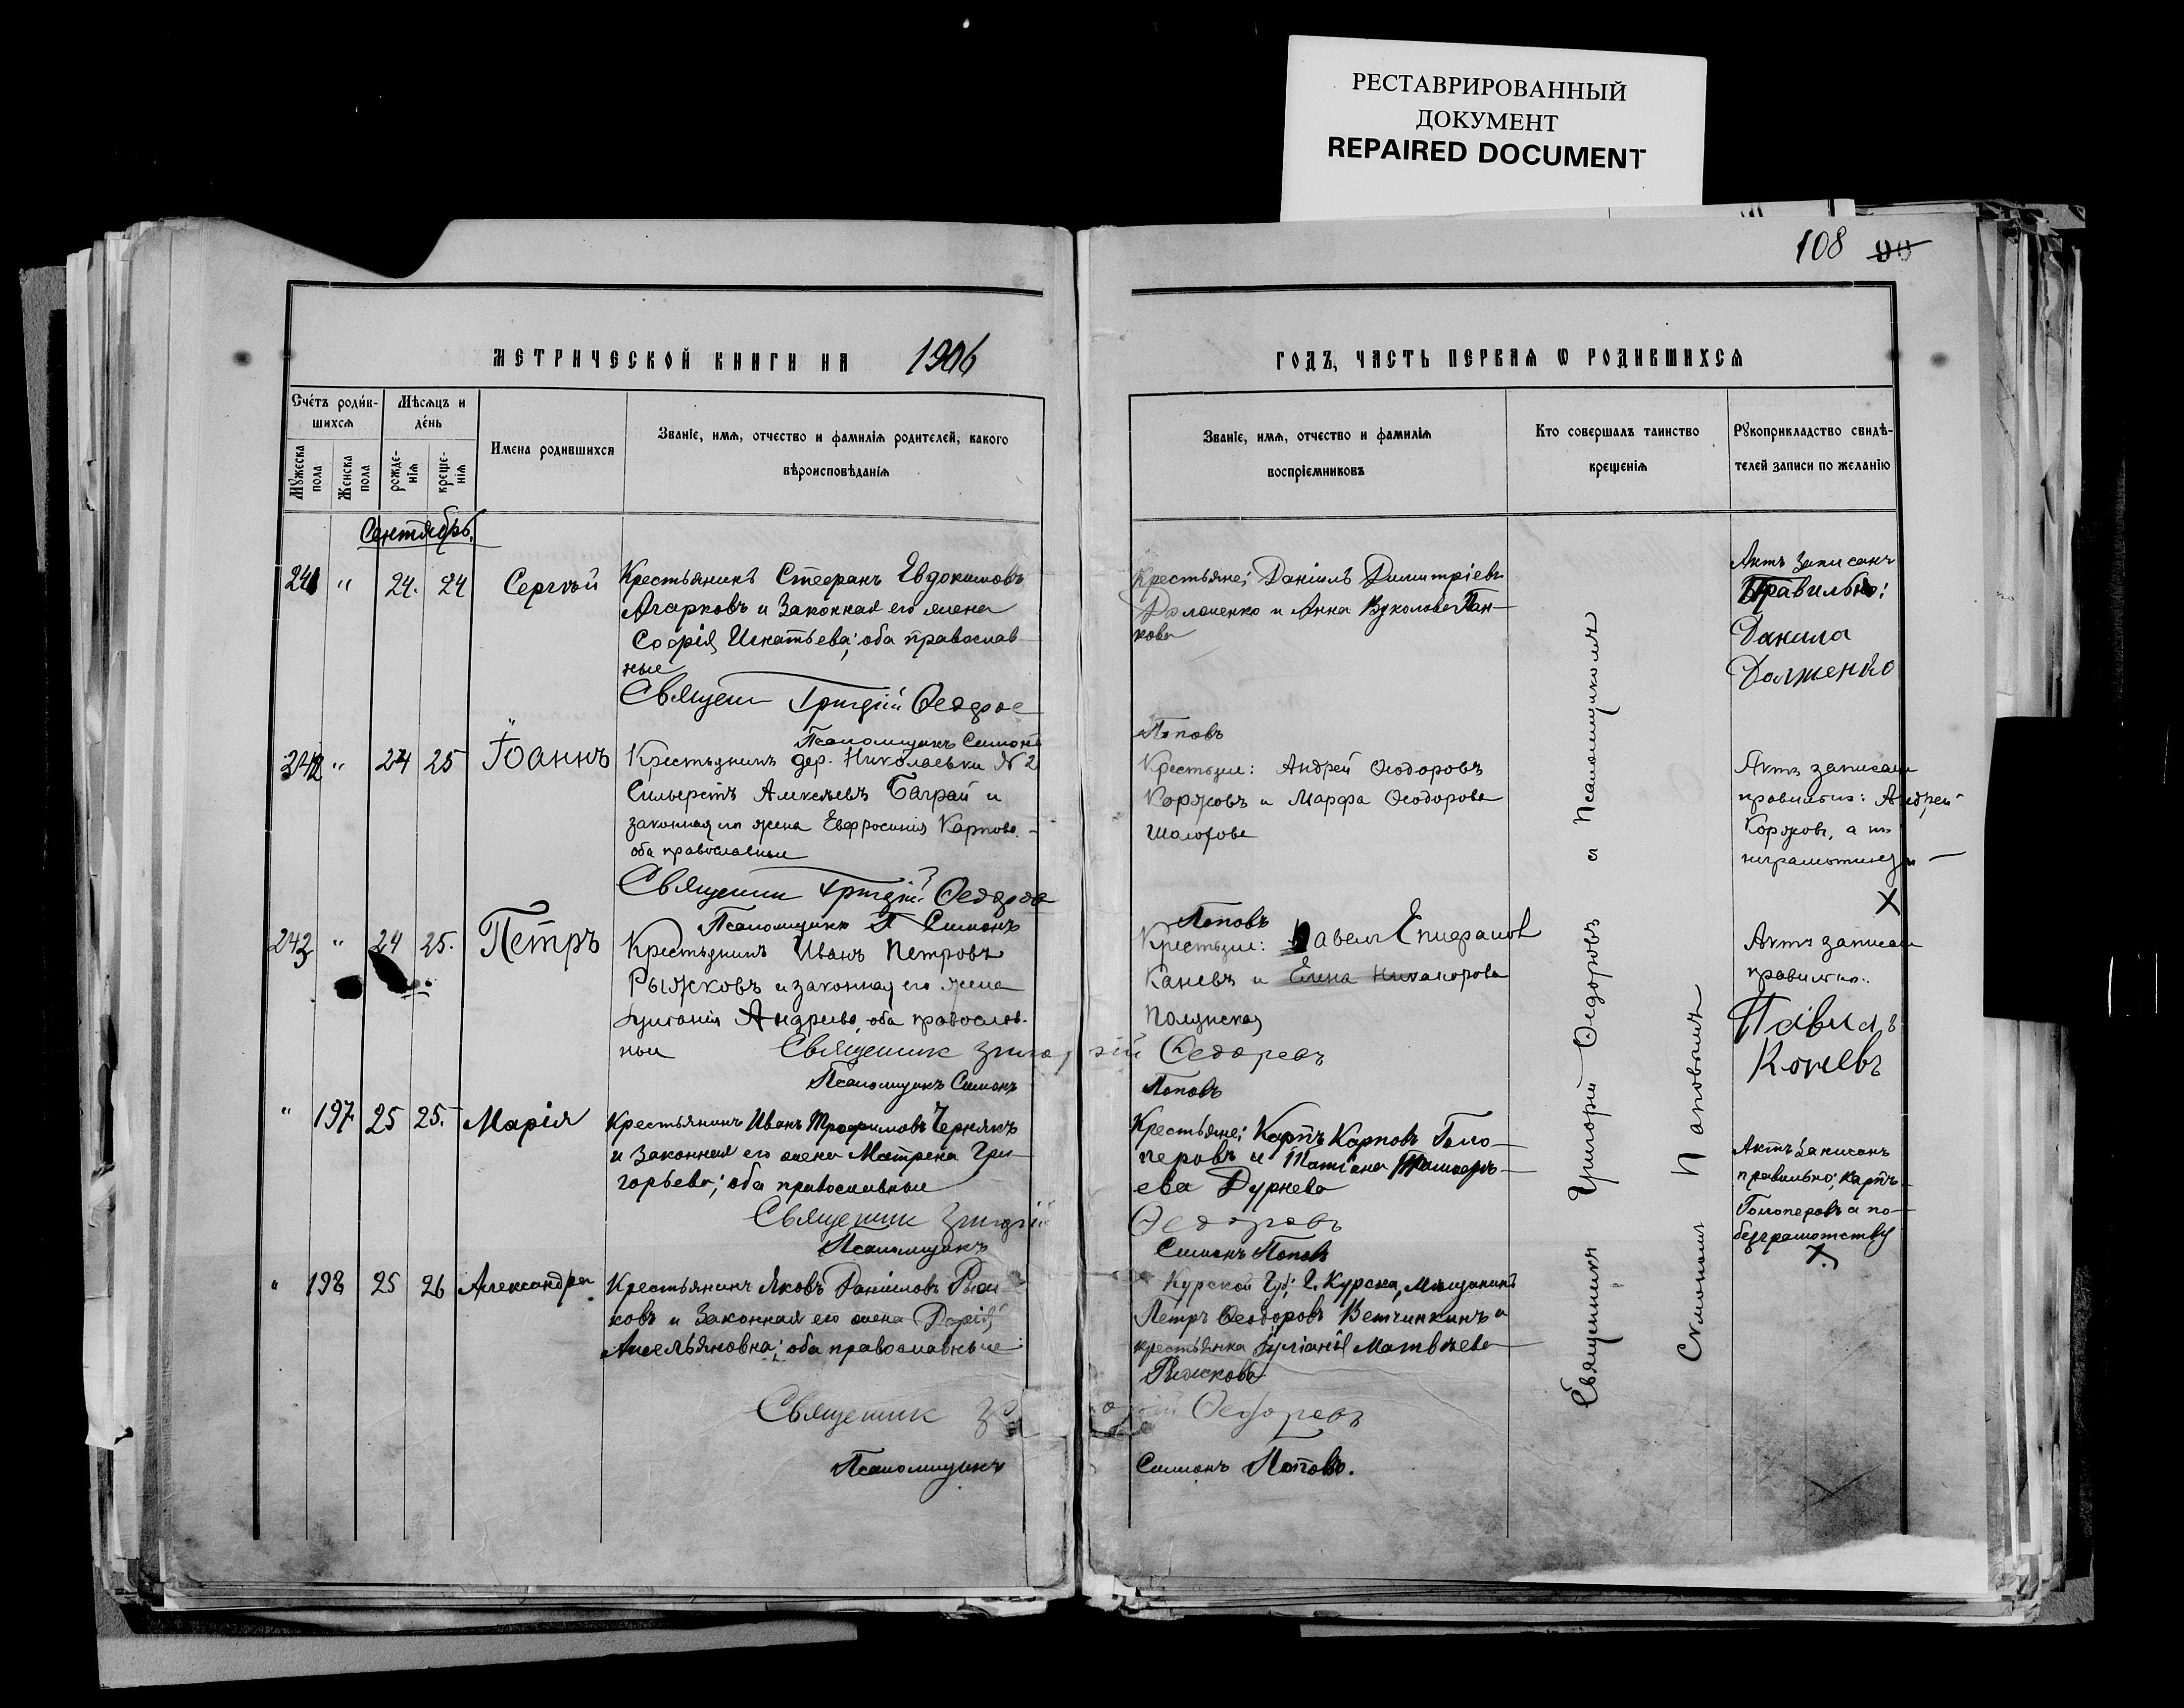 РЕСТАВРИРОВАННЫЙ
ДОКУМЕНТ
REPAIRED DOCUMENT
108
МЕТРИЧЕСКОЙ КНИГИ НА 1906
ГОДЪ, ЧАСТЬ ПЕРВАЯ Ѡ РОДИВШИХСЯ
Счетъ родив-
шихся
Мѣсяцъ и
день
Мужеска
пола
Женска
пола
рожде-
нія
креще-
нія
Имена родившихся
Званіе, имя, отчество и фамилія родителей, какого
вѣроисповѣданія
Званіе, имя, отчество и фамилія
воспріемниковъ
Кто совершалъ таинство
крещенія
Рукоприкладство свидѣ-
телей записи по желанію
Сентябрь.
241 " 24. 24 Сергѣй
Крестьянинъ Стефанъ Евдокимовъ
Агарковъ и законная его жена
Софія Игнатьева; оба православ-
ные
Священ Григорій Ѳедоров
Псаломщикъ Симонъ
Крестьяне; Даніилъ Димитріевъ
и Анна Вуколова Пан-
кова
Поповъ
Актъ записанъ
Правильно:
Данила
Долженко
242 " 24 25 Іоаннъ
Крестьянинъ дер. Николаевки № 2
Сильверстъ Алексѣевъ Баграй и
законная его жена Евфросинія Карпова
оба православные
Священник Григорій Ѳедоров
Псаломщикъ Симонъ
Крестьяне: Андрей Ѳеодоровъ
Коржовъ и Марфа Ѳеодорова
Шолохова
Поповъ
Актъ записанъ
правильно: Андрей
Коржовъ, а по
неграмотности
X
243 " 24 25. Петръ
Крестьянинъ Иванъ Петровъ
Рыжковъ и законная его жена
Андреева, оба православ-
ные Священник Григорій Ѳедоровъ
Псаломщикъ Симонъ
Крестьяне: Павелъ Епифанов
Каневъ и Елена Никанорова
Полунская
Поповъ
Актъ записанъ
правильно.
Павилъ
Коневъ
" 197 25 25. Марія
Крестьянинъ Иванъ Трофимовъ Чернякъ
и законная его жена Матрена Гри-
горьева; оба православные
Священник Григорій
Псаломщикъ
Крестьяне; Карпъ Карповъ Голо-
перовъ и Татіана
ева Дурнева
Ѳедоровъ
Симонъ Поповъ
Актъ записанъ
правильно; Карпъ
Голоперовъ а по
безграмотству
X
" 198 25 26 Александра
Крестьянинъ Яковъ Даніиловъ Рыж
ковъ и законная его жена Дарія
Амельяновна; оба православные
Священник
Псаломщикъ
Курской Губ; г. Курска, Мѣщанинъ
Петръ Ѳеодоровъ Ветчинкинъ и
крестьянка Іуліанія Матвѣева
Рыжкова
Ѳедоровъ
Симонъ Поповъ.
Священникъ Григорій Ѳеодоровъ и Псаломщикомъ
Симономъ Поповымъ